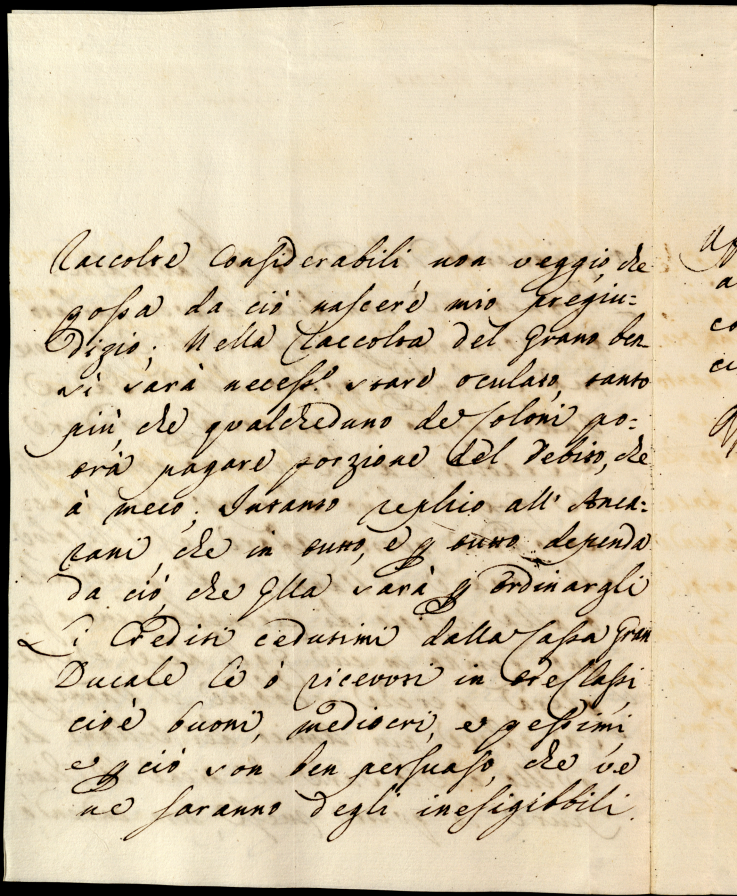 Raccolte considerabili non veggio, che
possa da ciò nascere mio pregiu=
dizio; Nella Raccolta del Grano ben
sì sarà necess.º stare oculato, tanto
più, che qualcheduno de Coloni po=
trà pagare porzione del Debito, che
à meco; Intanto replico all' Anca=
rani, che in tutto, e p tutto dependa
da ciò, che Ella sarà p ordinargli
Li Crediti cedutimi dalla Cassa Gran
Ducale li ò ricevuti in tre Classi
cioè buoni, mediocri, e pessimi
e p ciò son ben persuaso, che ve
ne saranno degli inesigibbili.